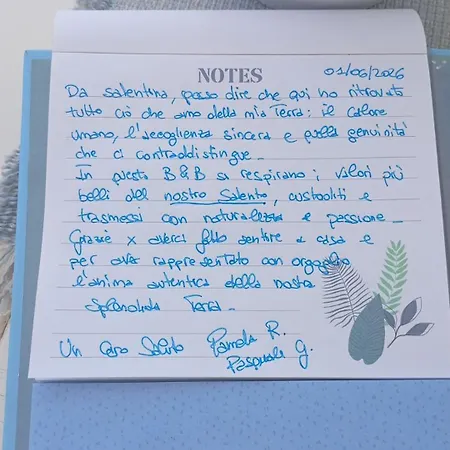 NOTES
01/06/2026
Da salentina, posso dire che qui ho ritrovato
tutto ciò che amo della mia Terra: il calore
umano, l'accoglienza sincera e quella genuinità
che ci contraddistingue.
In questo B&B si respirano i valori più
belli del nostro Salento, custoditi e
trasmessi con naturalezza e passione.
Grazie x averci fatto sentire a casa e
per aver rappresentato con orgoglio
l'anima autentica della nostra
splendida Terra.
Un caro saluto Pamela R.
Pasquale G.